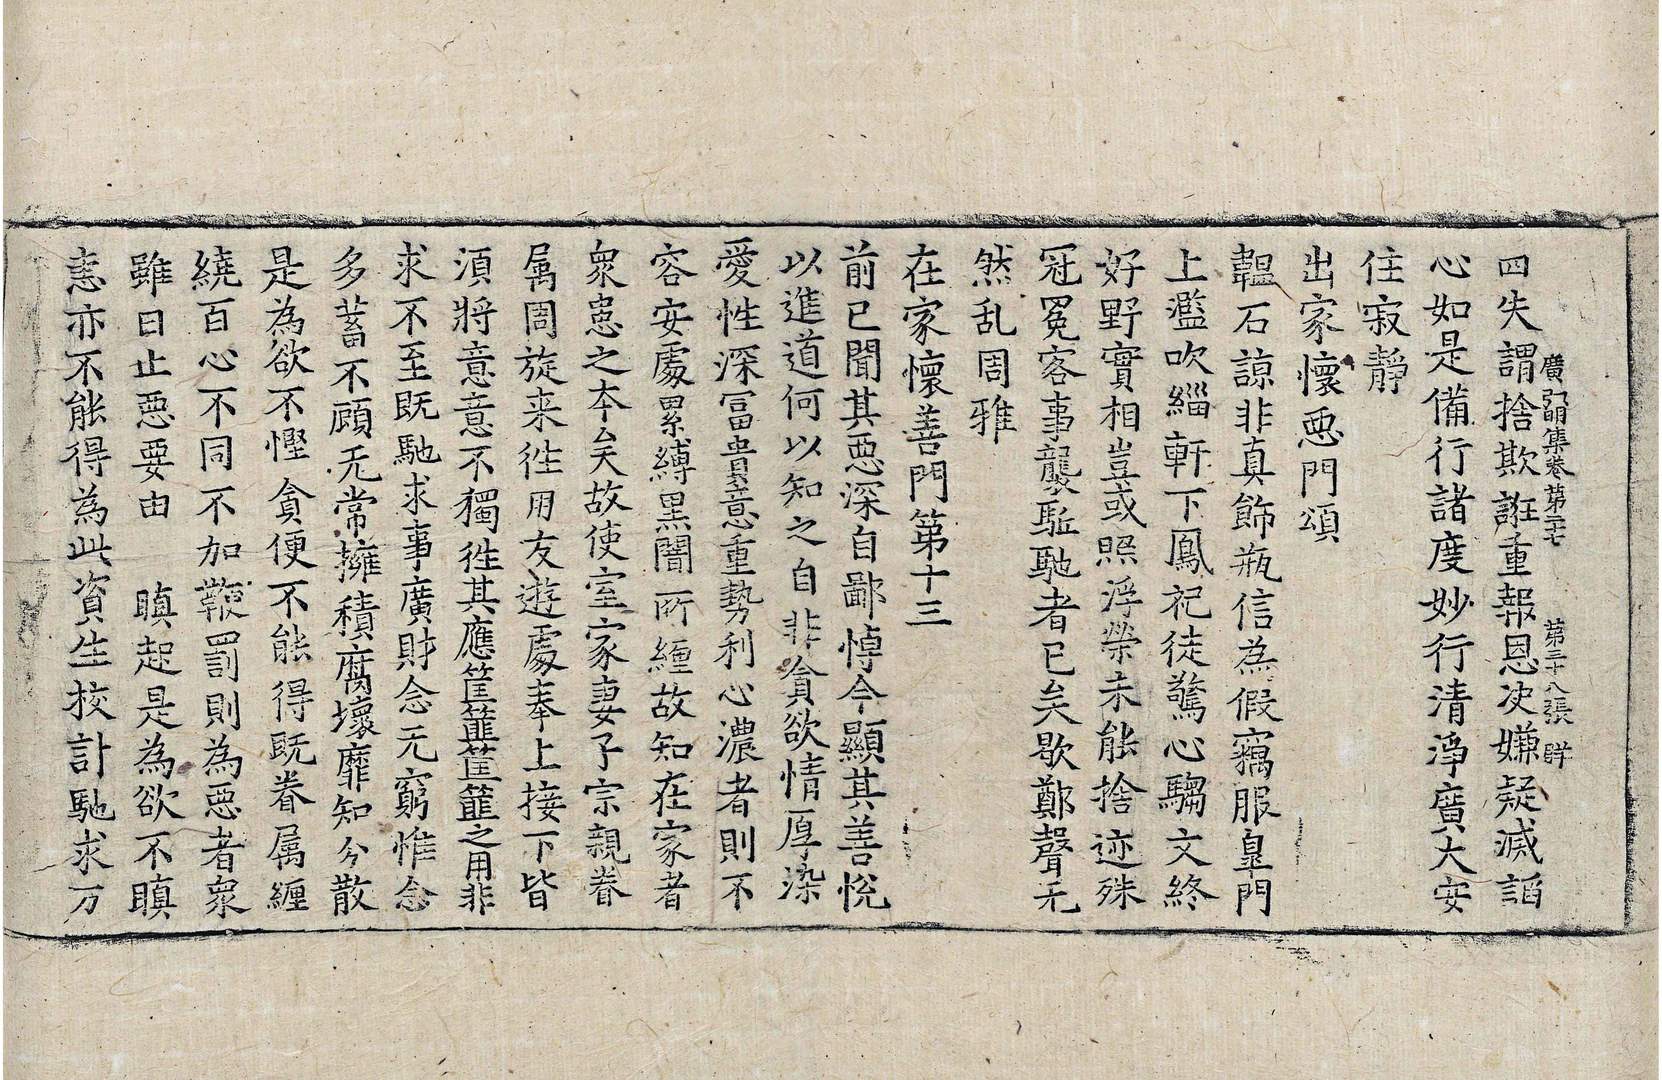 廣弘明集卷第二十七　第三十八張　群
四失謂捨欺誑重報恩决嫌疑滅諂
心如是備行諸度妙行清淨廣大安
住寂靜
出家懷惡門頌
韞石諒非真飾瓶信為假竊服皐門
上濫吹緇軒下鳳祀徒驚心騶文終
好野實相豈或照浮榮未能捨迹殊
冠冕客事襲駈馳者已矣歇鄭聲无
然乱周雅
在家懷善門第十三
前已聞其惡深自鄙悼今顯其善悅
以進道何以知之自非貪欲情厚染
愛性深冨貴意重勢利心濃者則不
容安處累縛黑闇所纏故知在家者
衆患之本矣故使室家妻子宗親眷
属周旋来往用友遊處奉上接下皆
湏將意意不獨徃其應筐篚筐篚之用非
求不至既馳求事廣財念无窮惟念
多蓄不顧无常擁積腐壞靡知分散
是為欲不慳貪便不能得既眷属纏
繞百心不同不加鞭罰則為惡者衆
雖曰止惡要由　瞋起是為欲不瞋
恚亦不能得為此資生挍計馳求万